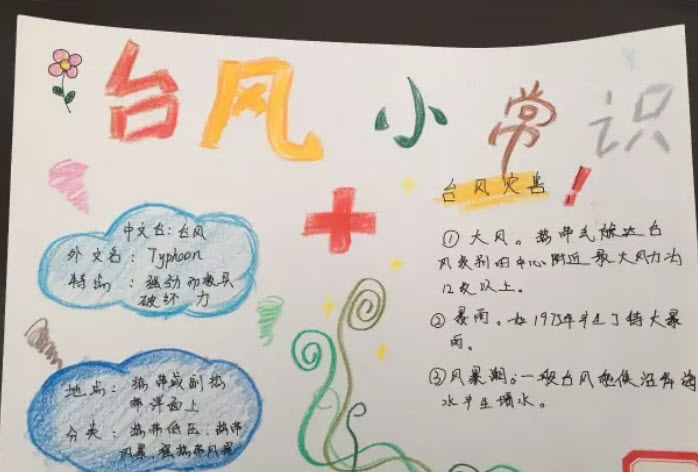 台风小常识
中文台：台风
外文名：Typhoon
特点：强劲而极具
破坏力
地点：热带或副热
带洋面上
分类：热带低压、热带
风暴、强热带风暴
台风灾害！
① 大风。热带气旋达台
风级别的中心附近最大风力为
12级以上。
② 暴雨。如1975年
特大暴
雨。
③ 风暴潮：一般台风能使沿岸海
水产生增水。